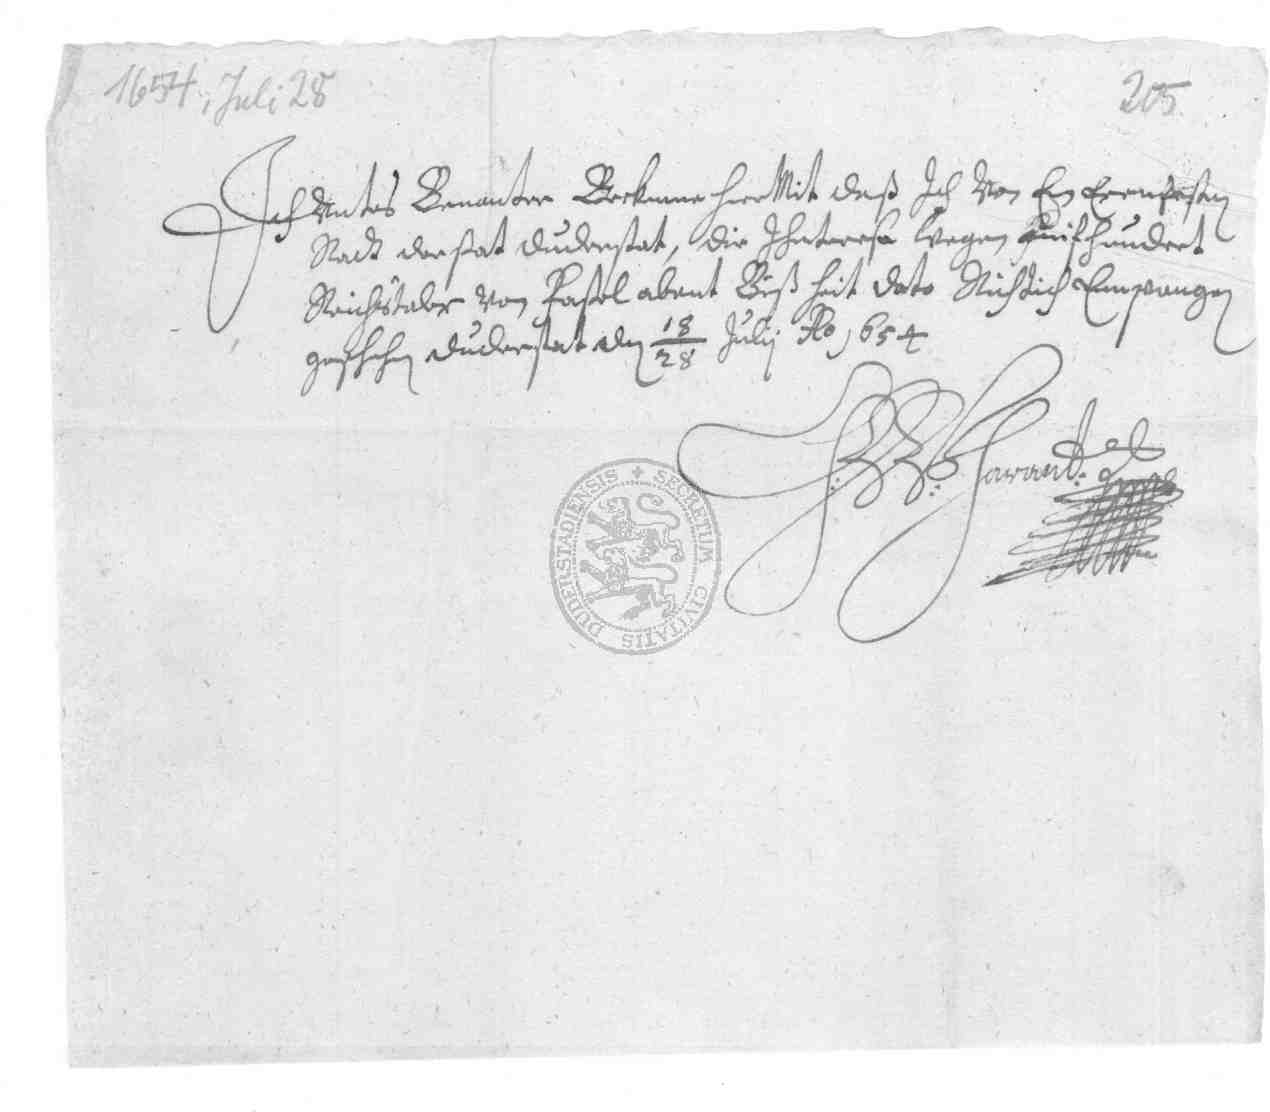 1654, Juli 28
205
Ich Untes Benanter Bekenne hier Mit daß Ich Von Ein Erenfesten
Radt der stat Duderstat, die Ihnteresse wegen hundert
Reichstaler Von Paßel abent Biß heit dato Richtich Empangen
geschehen Duderstat den 18/28 Julij Ao 1654
SECRETUM CIVITATIS DUDERSTADIENSIS